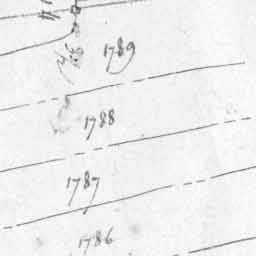 1789
1788
1787
1786